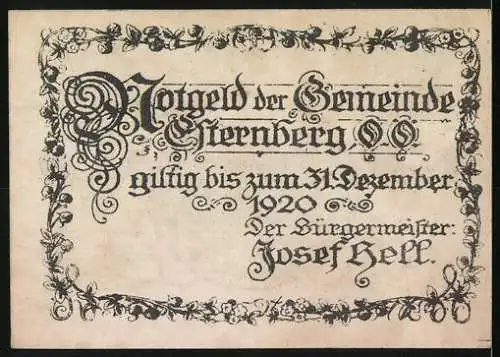 Notgeld der Gemeinde
Esternberg, O.Ö.
giltig bis zum 31. Dezember
1920
Der Bürgermeister:
Josef Hell.